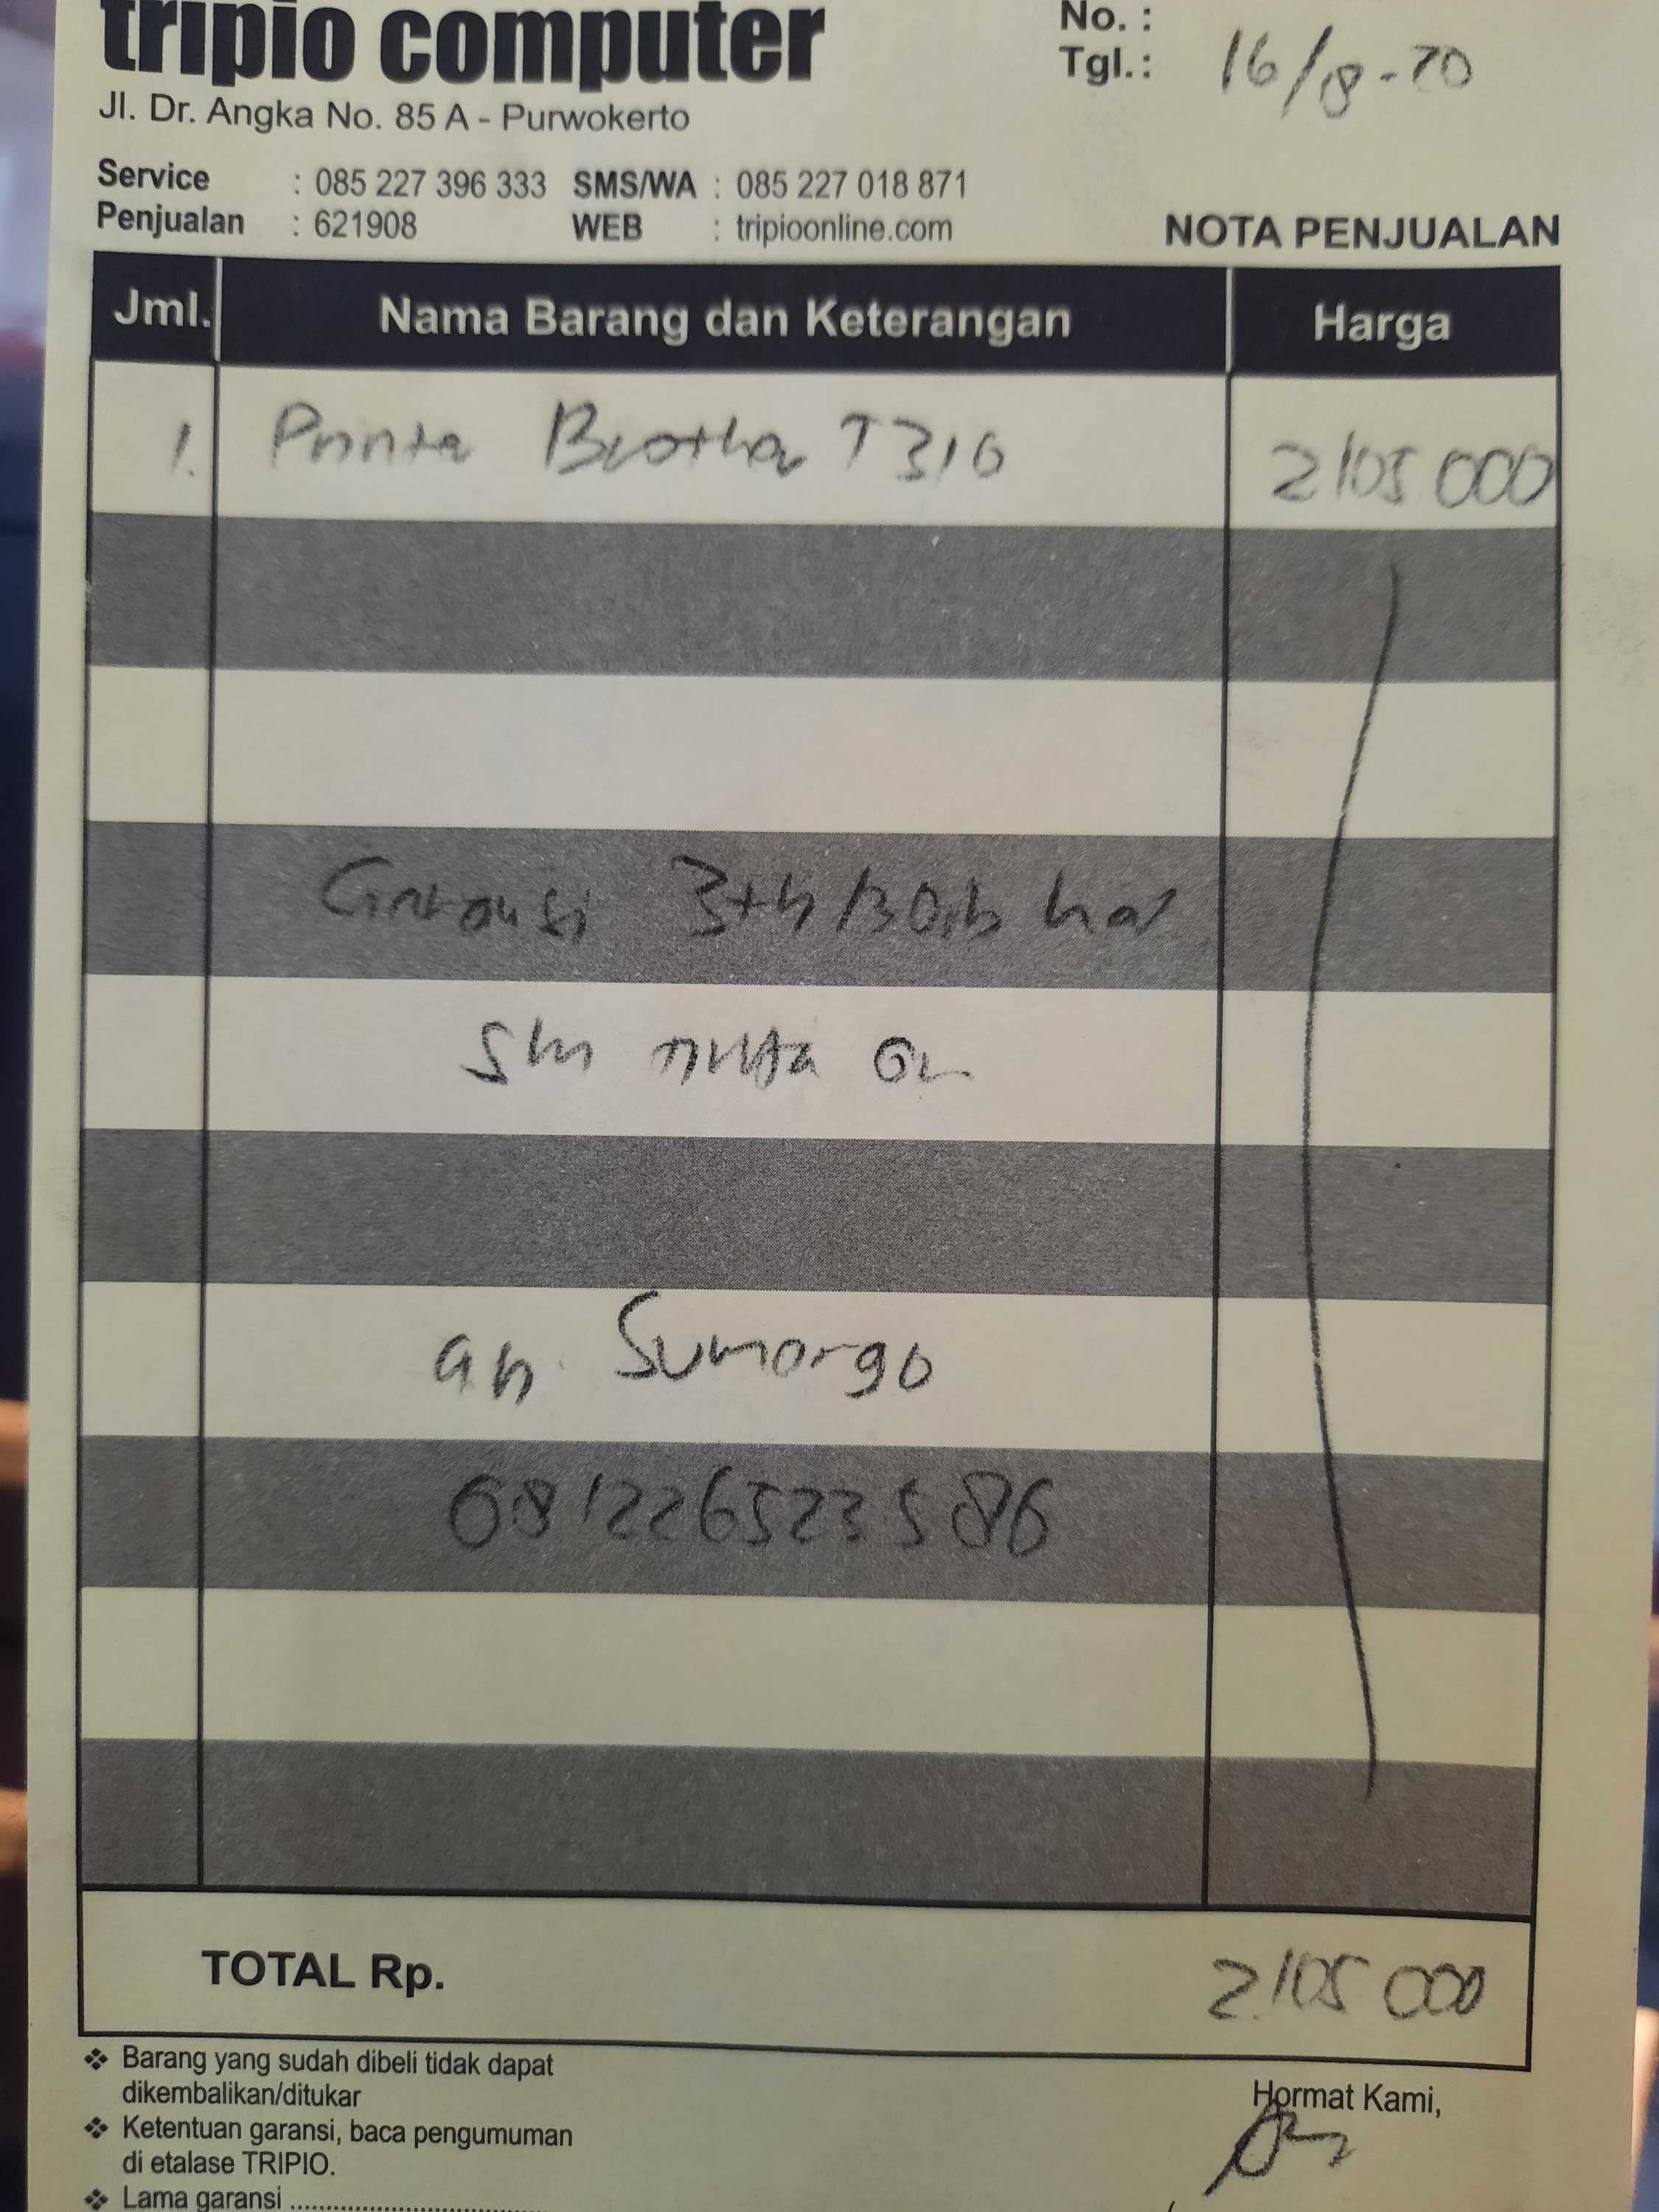 tripio computer
No. :
Tgl.: 16/8-20
Jl. Dr. Angka No. 85 A - Purwokerto
Service : 085 227 396 333 SMS/WA : 085 227 018 871
Penjualan : 621908 WEB : tripioonline.com
NOTA PENJUALAN
Jml. Nama Barang dan Keterangan Harga
1. Printer Brother T310 2105 000
Garansi 3th/30rb
an. Sumargo
081226523586
TOTAL Rp. 2.105 000
❖ Barang yang sudah dibeli tidak dapat
dikembalikan/ditukar
❖ Ketentuan garansi, baca pengumuman
di etalase TRIPIO.
❖ Lama garansi ..............................
Hormat Kami,